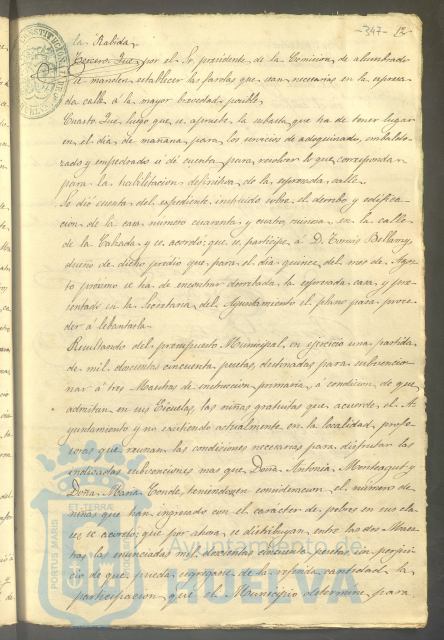 -347- 12
la Rabida.
Tercero. Que por el Sr. presidente de la Comision de alumbrado
se manden establecer las farolas que sean necesarias en la expresa-
da calle á la mayor brevedad posible.
Cuarto. Que luego que se apruebe la subasta que ha de tener lugar
en el dia de mañana para los servicios de adoquinado, embaldo-
zado y empedrado se dé cuenta para resolver lo que corresponda
para la habilitacion definitiva de la expresada calle.
Se dió cuenta del expediente instruido sobre el derribo y edifica-
cion de la casa número cuarenta y cuatro, ruinosa en la calle
de la Calzada y se acordó: que se participe á D. Tomás Bellamy,
dueño de dicho predio que para el dia quince del mes de Agos-
to próximo se ha de encontrar derribada la expresada casa, y pre-
sentado en la Secretaria del Ayuntamiento el plano para proce-
der á lebantarla.
Resultando del presupuesto Municipal en ejercicio una partida
de mil doscientas cincuenta pesetas destinadas para subvencio-
nar á tres Maestras de instruccion primaria, á condicion de que
admitan en sus Escuelas, las niñas gratuitas que acuerde el A-
yuntamiento y no existiendo actualmente en la localidad profe-
soras que reunan las condiciones necesarias para disfrutar las
indicadas subvenciones mas que Doña Antonia y
Doña Maria Conde, teniendose en consideracion el número de
niñas que han ingresado con el caracter de pobres en sus cla-
ses se acordó: que por ahora se distribuyan entre las dos Maes-
tras las enunciadas mil doscientas cincuenta pesetas sin perjui-
cio de que pueda segregarse de la referida cantidad la
participacion que el Municipio determine para
PORTUS MARIS
ET TERRAE
Ayuntamiento de
HUELVA